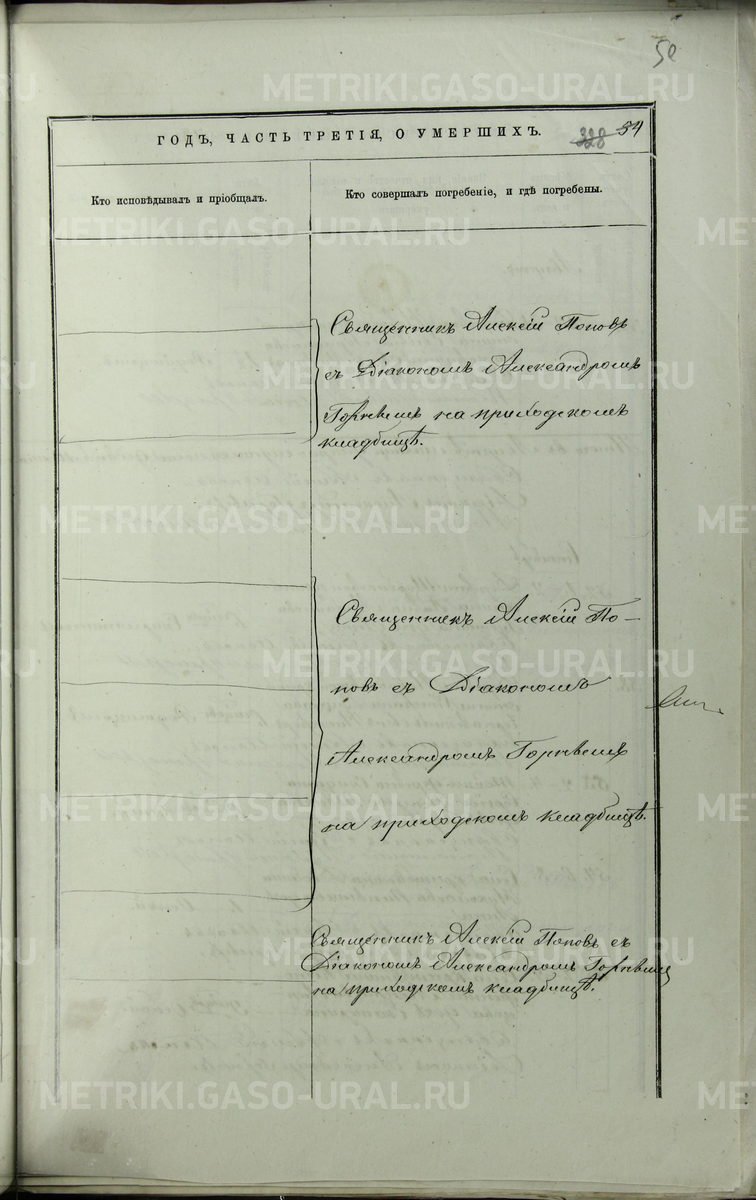 50
ГОДЪ, ЧАСТЬ ТРЕТІЯ, О УМЕРШИХЪ.
328 54
Кто исповѣдывалъ и пріобщалъ.
Кто совершалъ погребеніе, и гдѣ погребены.
Священникъ Алексій Поповъ
съ Діакономъ Александромъ
на приходскомъ
кладбищѣ.
Священникъ Алексій По-
повъ съ Діакономъ
Александромъ
на приходскомъ кладбищѣ.
Священникъ Алексій Поповъ съ
Діакономъ Александромъ
на приходскомъ кладбищѣ.
METRIKI.GASO-URAL.RU